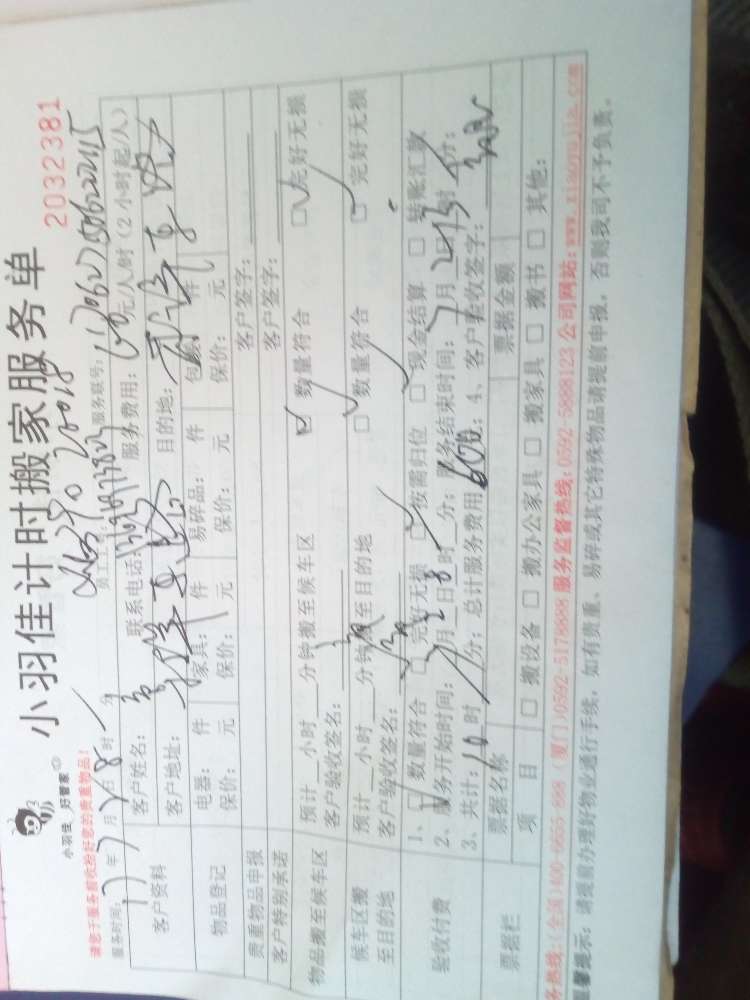 小羽佳计时搬家服务单
小羽佳 好管家
2032381
请您于服务前收拾好您的贵重物品！
员工工号： 服务联号：
服务时间：17年7月28日8时 分 服务费用： 元/人/时（2小时起/人）
客户资料 客户姓名： 联系电话：
客户地址： 目的地：
物品登记 电器： 件 家具： 件 易碎品： 件 包裹： 件
保价： 元 保价： 元 保价： 元 保价： 元
贵重物品申报 客户签字：
客户特别承诺 客户签字：
物品搬至候车区 预计__小时__分钟搬至候车区 ☑ 数量符合 ☑ 完好无损
客户验收签名：
候车区搬至目的地 预计__小时__分钟搬至目的地 ☑ 数量符合 ☑ 完好无损
客户验收签名：
验收付费 1、☑ 数量符合 ☑ 完好无损 ☑ 按需归位 ☑ 现金结算 □ 转账汇款
2、服务开始时间：7月28日8时__分； 服务结束时间：7月 日 时 分；
3、共计：10时 分；总计服务费用：600；4、客户验收签字：
票据栏 票据名称 票据金额
项 目 □ 搬设备 □ 搬办公家具 □ 搬家具 □ 搬书 □ 其他：
务热线：（全国）400-6655-888（厦门）0592-5178888 服务监督热线：0592-5888123 公司网站：www.xiaoyujia.com
温馨提示：请提前办理好物业通行手续，如有贵重、易碎或其它特殊物品请提前申报，否则我司不予负责。